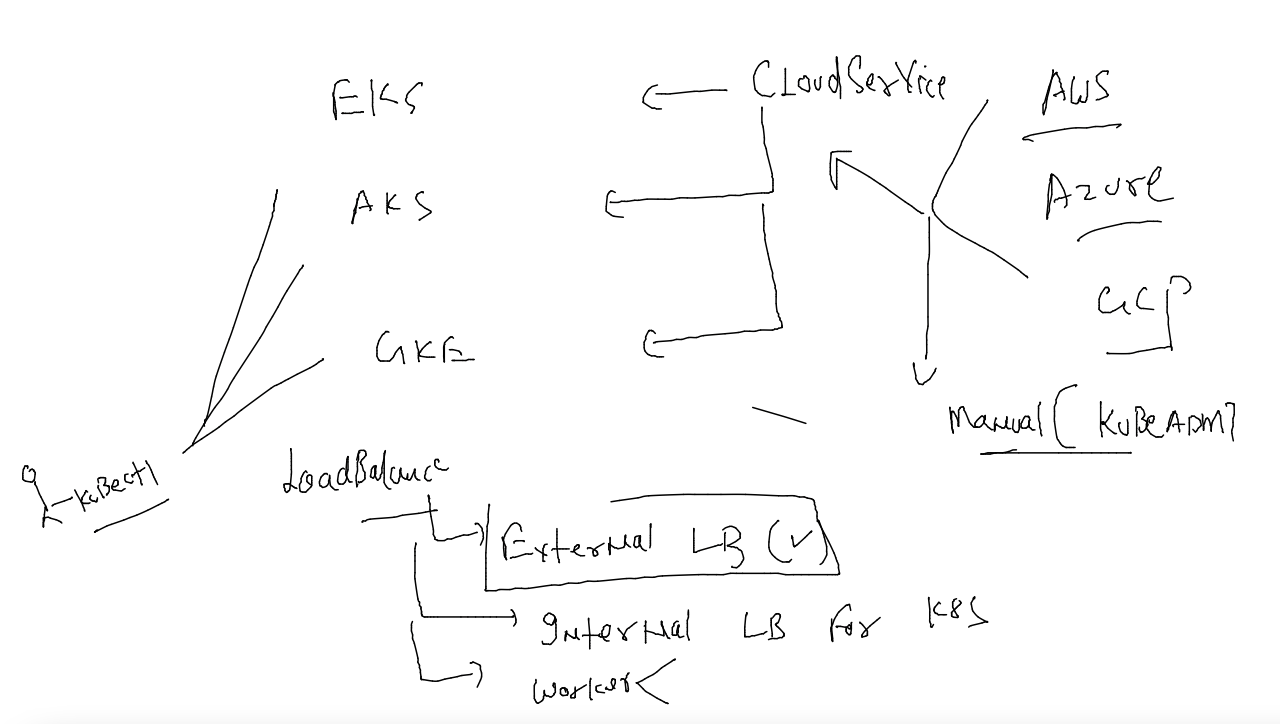 EKS
CLoudService
AWS
AKS
Azure
GKE
GCP
Manual ( KuBeADM)
KuBectl
LoadBalance
External LB (✓)
Internal LB For K8S
Worker <